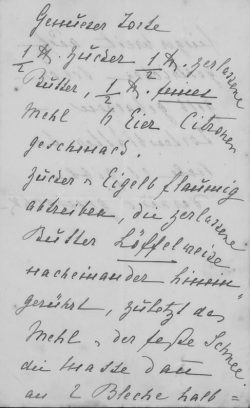 Genueser Torte
1/2 ℔. Zucker 1/2 ℔. zerlassene
Butter, 1/2 ℔. feines
Mehl 4 Eier Citronen
geschmack.
Zucker u Eigelb flaumig
abtreiben, die zerlassene
Butter Löffelweise
nacheinander hinein
gerührt, zuletzt das
Mehl u der feste Schnee
die Masse dan
an 2 Bleche halb =